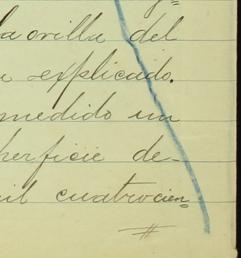 la orilla del
explicado.
medido un
perficie de-
il cuatrocien=